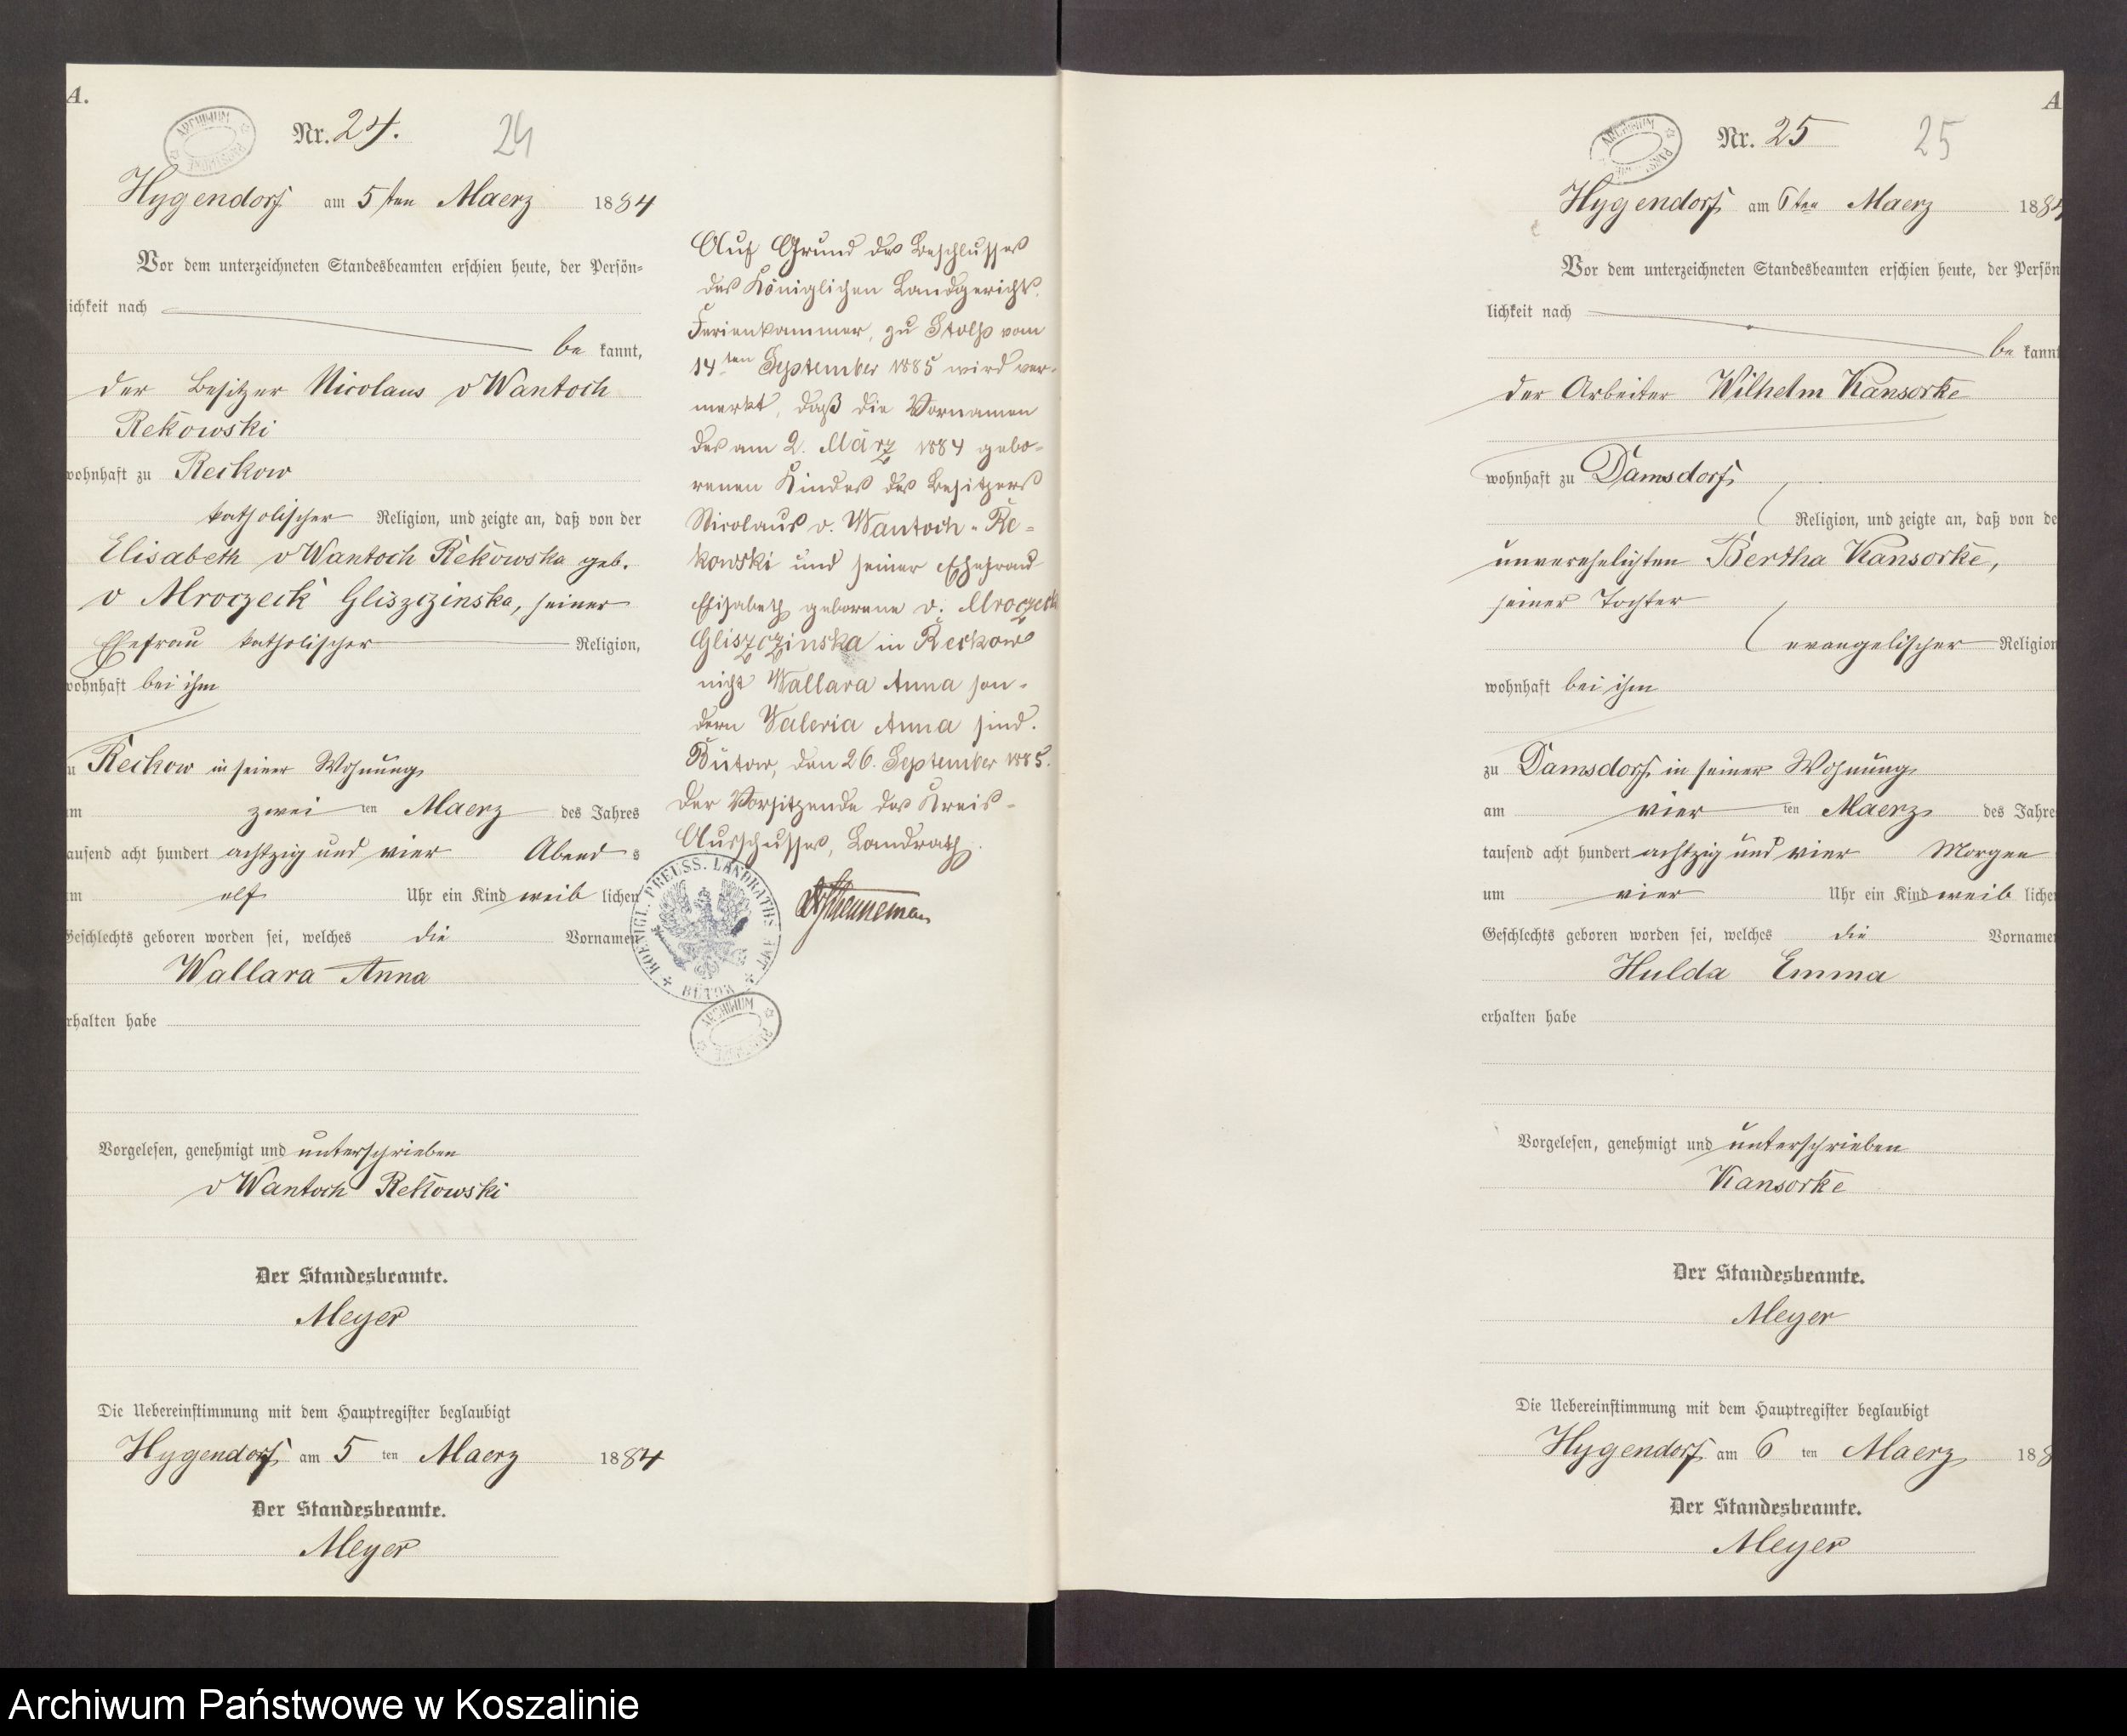 A.
Nr. 24.
24
Hygendorf am 5ten Maerz 1884
Vor dem unterzeichneten Standesbeamten erschien heute, der Persön-
lichkeit nach
be kannt,
der Besitzer Nicolaus v Wantoch
Rekowski
wohnhaft zu Reckow
katholischer Religion, und zeigte an, daß von der
Elisabeth v Wantoch Rekowska geb.
v Mroczeck Gliszczinska, seiner
Ehefrau katholischer Religion,
wohnhaft bei ihm
zu Reckow in seiner Wohnung
am zwei ten Maerz des Jahres
tausend acht hundert achtzig und vier Abend s
um elf Uhr ein Kind weib lichen
Geschlechts geboren worden sei, welches die Vornamen
Wallara Anna
erhalten habe
Vorgelesen, genehmigt und unterschrieben
v Wantoch Rekowski
Der Standesbeamte.
Meyer
Die Uebereinstimmung mit dem Hauptregister beglaubigt
Hygendorf am 5 ten Maerz 1884
Der Standesbeamte.
Meyer
Auf Grund des Beschlusses
des Königlichen Landgericht,
Ferienkammer, zu Stolp vom
14ten September 1885 wird ver-
merkt, daß die Vornamen
des am 2. März 1884 gebo-
renen Kindes des Besitzers
Nicolaus v. Wantoch-Re-
kowski und seiner Ehefrau
Elisabeth geborene v. Mroczeck
Gliszczinska in Reckow
nicht Wallara Anna son-
dern Valeria Anna sind.
Bütow, den 26. September 1885.
Der Vorsitzende des Kreis-
Ausschusses, Landrath.
KOENIGL. PREUSS. LANDRATHS AMT
BÜTOW
ARCHIWUM
A
Nr. 25
25
Hygendorf am 6ten Maerz 1884
Vor dem unterzeichneten Standesbeamten erschien heute, der Persön
lichkeit nach
be kannt
der Arbeiter Wilhelm Kansorke
wohnhaft zu Damsdorf
Religion, und zeigte an, daß von de
unverehelichten Bertha Kansorke,
seiner Tochter
evangelischer Religion
wohnhaft bei ihm
zu Damsdorf in seiner Wohnung
am vier ten Maerz des Jahre
tausend acht hundert achtzig und vier Morgen
um vier Uhr ein Kind weib liche
Geschlechts geboren worden sei, welches die Vorname
Hulda Emma
erhalten habe
Vorgelesen, genehmigt und unterschrieben
Kansorke
Der Standesbeamte.
Meyer
Die Uebereinstimmung mit dem Hauptregister beglaubigt
Hygendorf am 6 ten Maerz 188
Der Standesbeamte.
Meyer
Archiwum Państwowe w Koszalinie